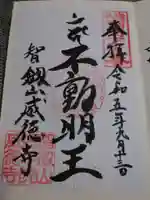 奉拝
令和五年九月十三日
不動明王
智劔山威徳寺